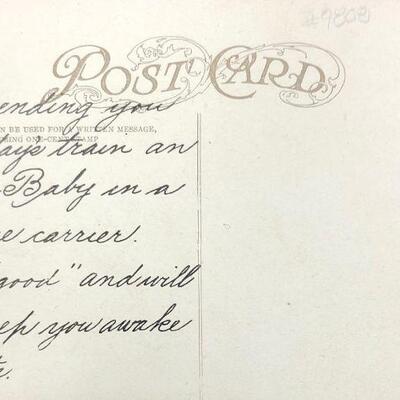 #9808
POST CARD
ending you
N BE USED FOR A WRITTEN MESSAGE,
SING ONE-CENT STAMP
days train an
Baby in a
e carrier.
good" and will
ep you awake